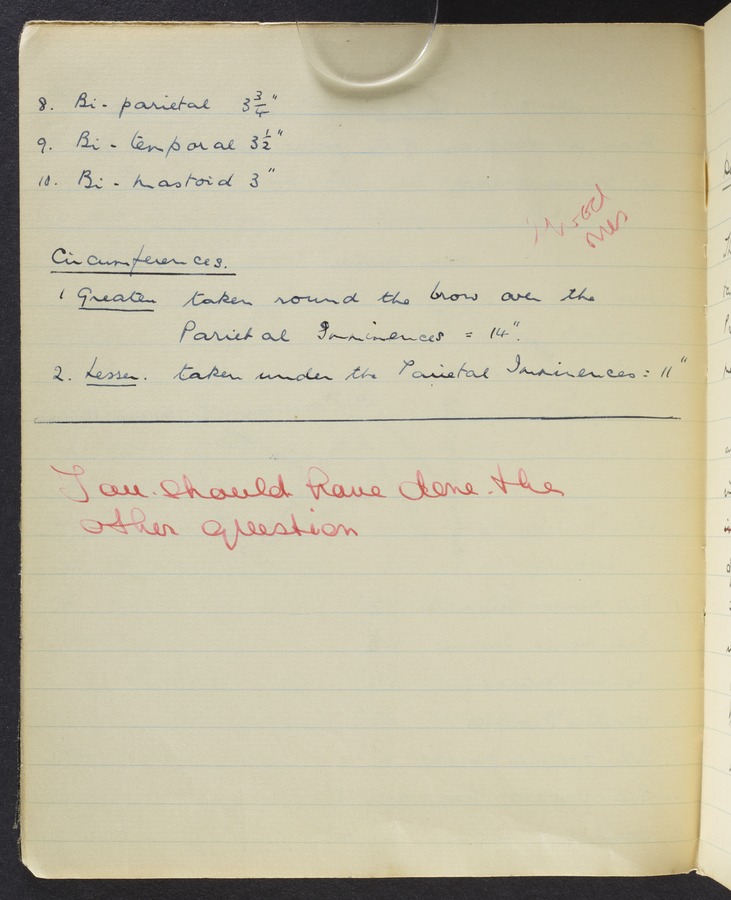 8. Bi - parietal 3 3/4"
9. Bi - temporal 3 1/2"
10. Bi - mastoid 3"
Circumferences.
1 Greater taken round the brow over the
Parietal Imminences = 14".
2. Lesser. taken under the Parietal Imminences = 11"
You should have done the
other question